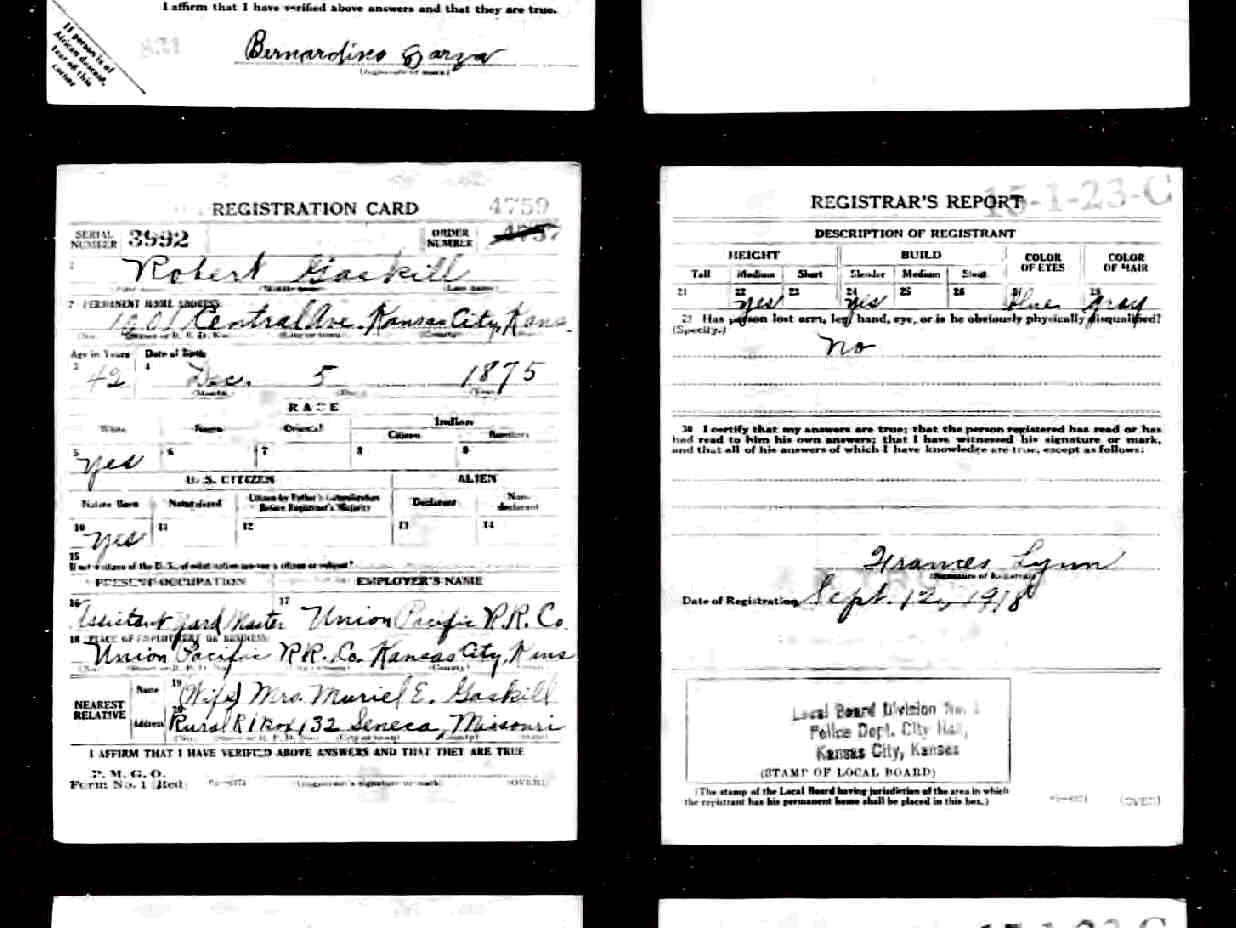 I affirm that I have verified above answers and that they are true.
If person is of
African descent,
tear off this
corner
831
Bernardino Garza
(Signature or mark)
REGISTRATION CARD 4759
SERIAL NUMBER 3992 ORDER NUMBER 4757
1 Robert Gaskill
(Middle name) (Last name)
2 PERMANENT HOME ADDRESS:
Central Ave. Kansas City, Kans
Age in Years Date of Birth
3 42 4 Dec. 5 1875
(Month) (Day) (Year)
RACE
White Negro Oriental Indian
Citizen Noncitizen
5 Yes 6 7 8 9
U. S. CITIZEN ALIEN
Native Born Naturalized Citizen by Father's Naturalization Before Registrant's Majority Declarant Non-declarant
10 Yes 11 12 13 14
15 If not a citizen of the U.S., of what nation are you a citizen or subject?
PRESENT OCCUPATION EMPLOYER'S NAME
16 Assistant Yard Master 17 Union Pacific R.R. Co.
18 PLACE OF EMPLOYMENT OR BUSINESS:
Union Pacific R.R. Co. Kansas City, Kans
NEAREST RELATIVE
Name 19 (Wife) Mrs. Muriel E. Gaskill
Address 20 Rural R 1 Box 132 Seneca, Missouri
I AFFIRM THAT I HAVE VERIFIED ABOVE ANSWERS AND THAT THEY ARE TRUE
P. M. G. O.
Form No. 1 (Red) (Registrant's signature or mark) (OVER)
15-1-23-C
REGISTRAR'S REPORT
DESCRIPTION OF REGISTRANT
HEIGHT BUILD COLOR OF EYES COLOR OF HAIR
Tall Medium Short Slender Medium Stout
21 22 Yes 23 24 Yes 25 26 27 Blue 28 Gray
29 Has person lost arm, leg, hand, eye, or is he obviously physically disqualified?
(Specify.)
No
30 I certify that my answers are true; that the person registered has read or has
had read to him his own answers; that I have witnessed his signature or mark,
and that all of his answers of which I have knowledge are true, except as follows:
Frances Lynn
(Signature of Registrar)
Date of Registration Sept. 12, 1918
Local Board Division No. 1
Police Dept. City Hall,
Kansas City, Kansas
(STAMP OF LOCAL BOARD)
(The stamp of the Local Board having jurisdiction of the area in which
the registrant has his permanent home shall be placed in this box.)
(OVER)
15-1-23-C